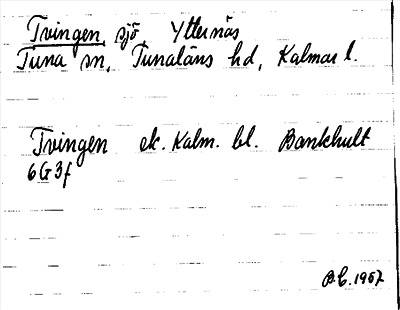 Tvingen, sjö, Ytternäs
Tuna sn, Tunaläns hd, Kalmar l.
Tvingen ek. Kalm. bl. Bankhult
6G3f
B.E. 1967